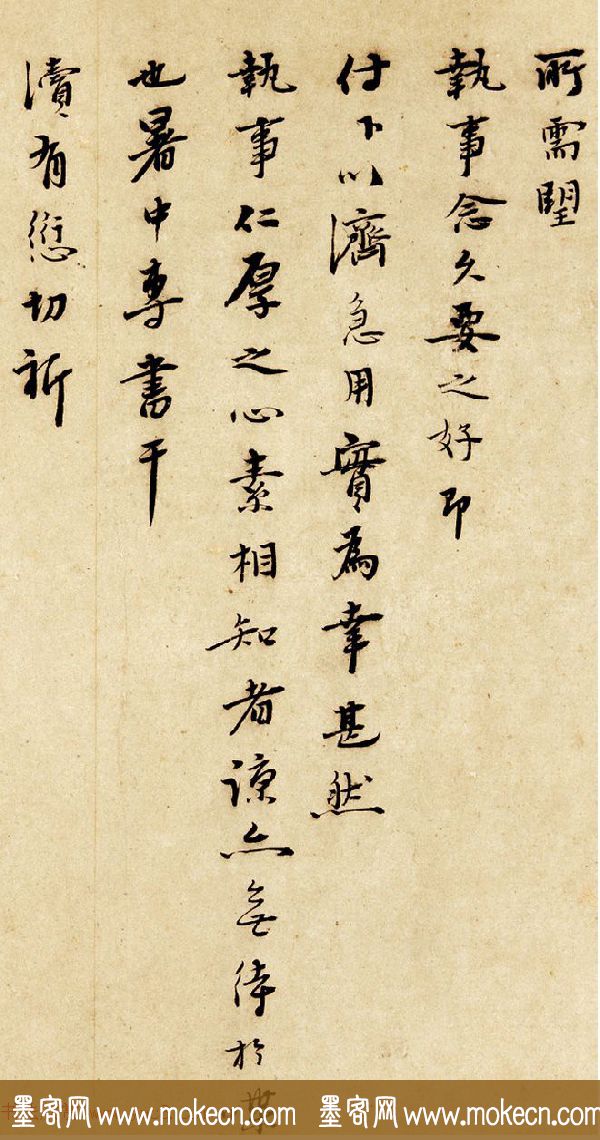 所需望
執事念久要之好即
付下以濟急用實為幸甚然
執事仁厚之心素相知者諒亦無待於
也暑中專書干
瀆有愆切祈
墨客网 www.mokecn.com 墨客网 www.mokecn.com